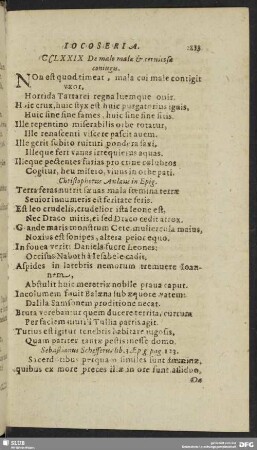 IOCOSERIA. 233
CCLXXIX De malo mala & reruissa
coniuge.
NOn est quod timeat, mala cui male contigit
vxor,
Horrida Tartarei regna luemque ouir.
Hæc crux, huic styx est huic purgatorius ignis,
Huic sine fine fames, huic sine fine sitis.
Ille repentino miserabilis orbe rotatur,
Ille renascenti viscere pascit auem.
Ille geris subito ruituri pondera saxi,
Illeque fert vanes irrequietus aquas.
Illeque pestentes furias pro coniuge colubros
Cogitur, heu misero, viuus in orbe pati.
Christophorus Anlauu in Epig.
Terra feras nutrit sæuas mala fœmina terræ
Seuior innumeris est feritate feris.
Est leo crudelis, crudelior ista leone est.
Nec Draco mitis, ei sed Draco cedit atrox.
Grande maris monstrum Cete. muliercula maius,
Noxius est sonipes, altera peior equo.
In fouea veriti Daniela fuere Leones:
Occisus Naboth à Iesabele cadis,
Aspides in latebris nemorum tremuere Ioan-
nem,
Abstulit huic meretrix nobile praua caput.
Incolumem fouit Balæna sub æquore vatem:
Dalila Samsonem proditione necat.
Bruta verebantur quem ducere territa, currum
Per faciem mitti Tullia partis agit.
Tutius est igitur tenebris habitare rugosis,
Quam pariter tantæ pestis inesse domo.
Sebastianus Schefferus lib. 3. Ep g. pag. 123.
Sacerdotibus perquam similes sunt
quibus ex more preces illæ in ore sunt assiduo,
Da
SLUB